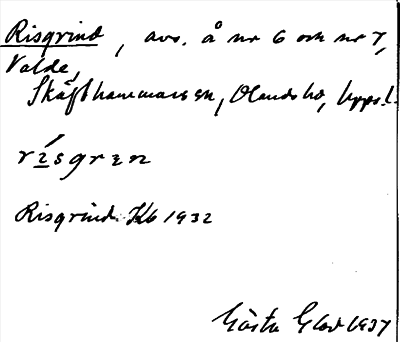 Risgrind, avs. å nr 6 och nr 7,
Valde,
Skäfthammars sn, Olands hd, Upps. l.
risgrɪn
Risgrind Kb 1932
Gösta Glad 1937